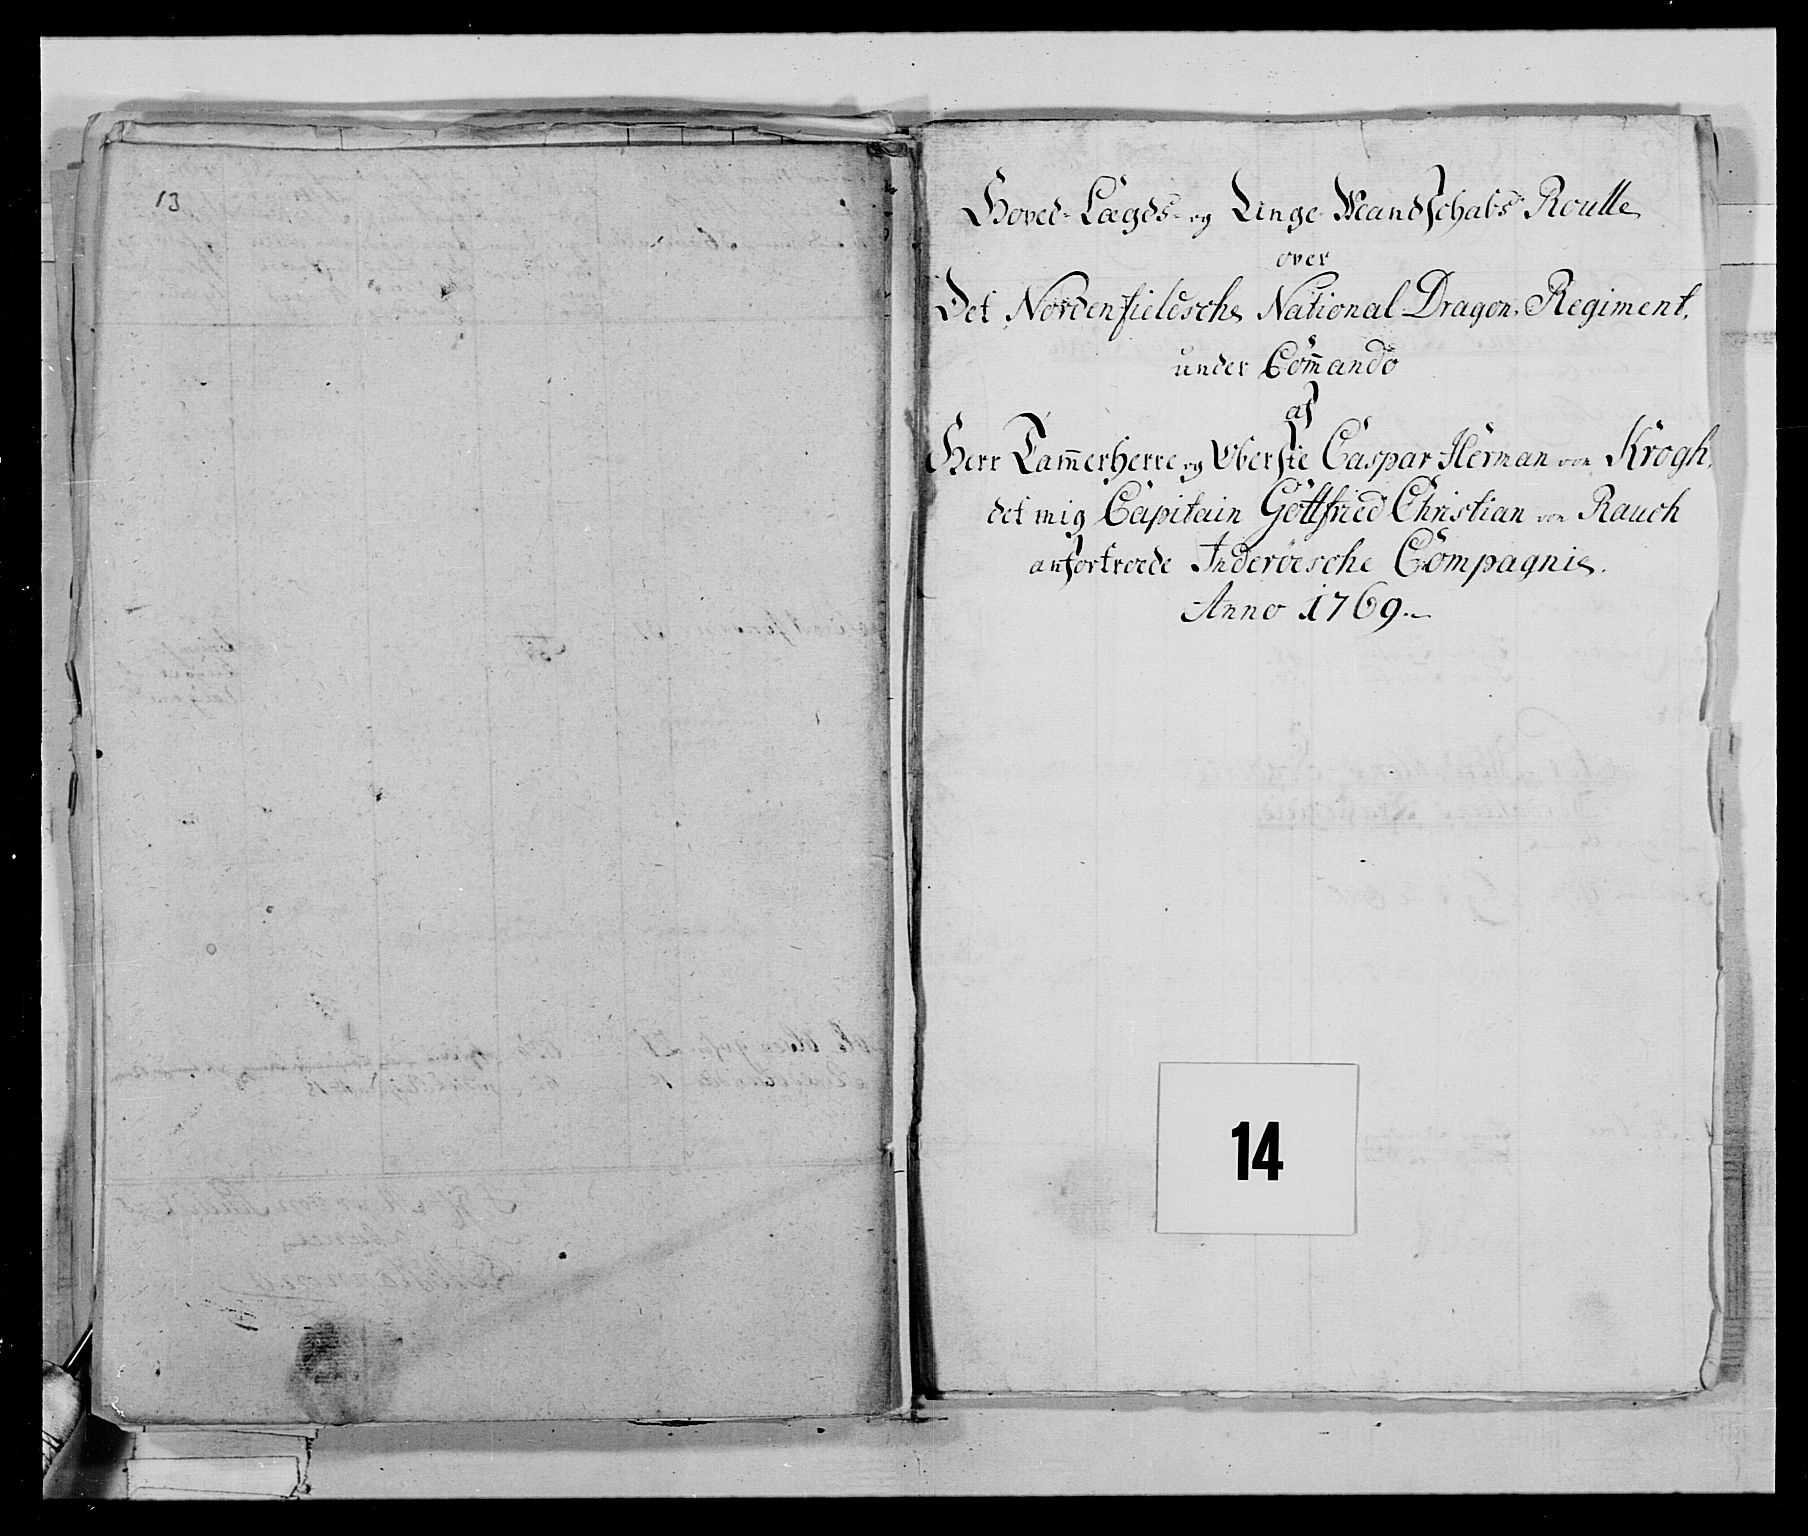 13
Hoved-Lægds- og Linge Mandschabs Roulle
over
Det Nordenfieldsche National Dragon Regiment,
under Com̄ando
af
Herr Cam̄erherre og Oberste Caspar Herman von Krogh,
det mig Capitain Gottfried Christian von Rauch
anfortroede Inderöesche Compagnie.
Anno 1769.
14